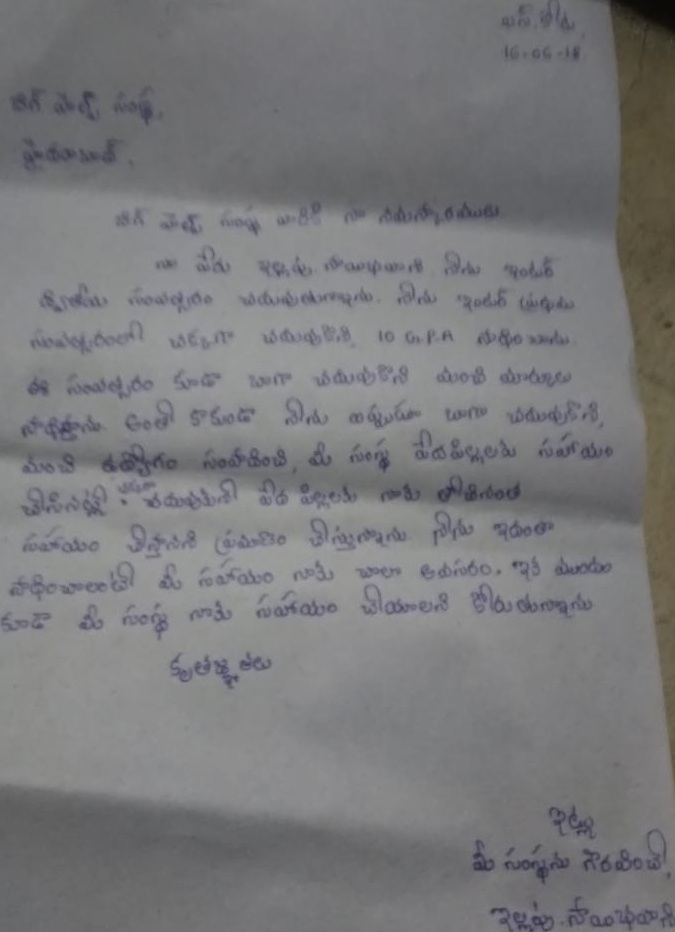 ఎస్. కోట,
16-06-18
బిగ్ హెల్ప్ సంస్థ,
హైదరాబాద్.
బిగ్ హెల్ప్ సంస్థ వారికి నా నమస్కారములు
నా పేరు ఇల్లపు. సాయిభవాని నేను ఇంటర్
ద్వితీయ సంవత్సరం చదువుతున్నాను. నేను ఇంటర్ ప్రథమ
సంవత్సరంలో చక్కగా చదువుకొని, 10 G.P.A సాధించాను.
ఈ సంవత్సరం కూడా బాగా చదువుకొని మంచి మార్కులు
సాధిస్తాను అంతే కాకుండా నేను బాగా చదువుకొని,
మంచి ఉద్యోగం సంపాదించి, మీ సంస్థ పేదపిల్లలకు సహాయం
చేసినట్లే చదువుకునే పేద పిల్లలకు నాకు తోచినంత
సహాయం చేస్తానని ప్రమాణం చేస్తున్నాను నేను ఇదంతా
సాధించాలంటే మీ సహాయం నాకు చాలా అవసరం. ఇక ముందు
కూడా మీ సంస్థ నాకు సహాయం చేయాలని కోరుతున్నాను
కృతజ్ఞతలు
ఇట్లు
మీ సంస్థను గౌరవించే,
ఇల్లపు. సాయిభవాని